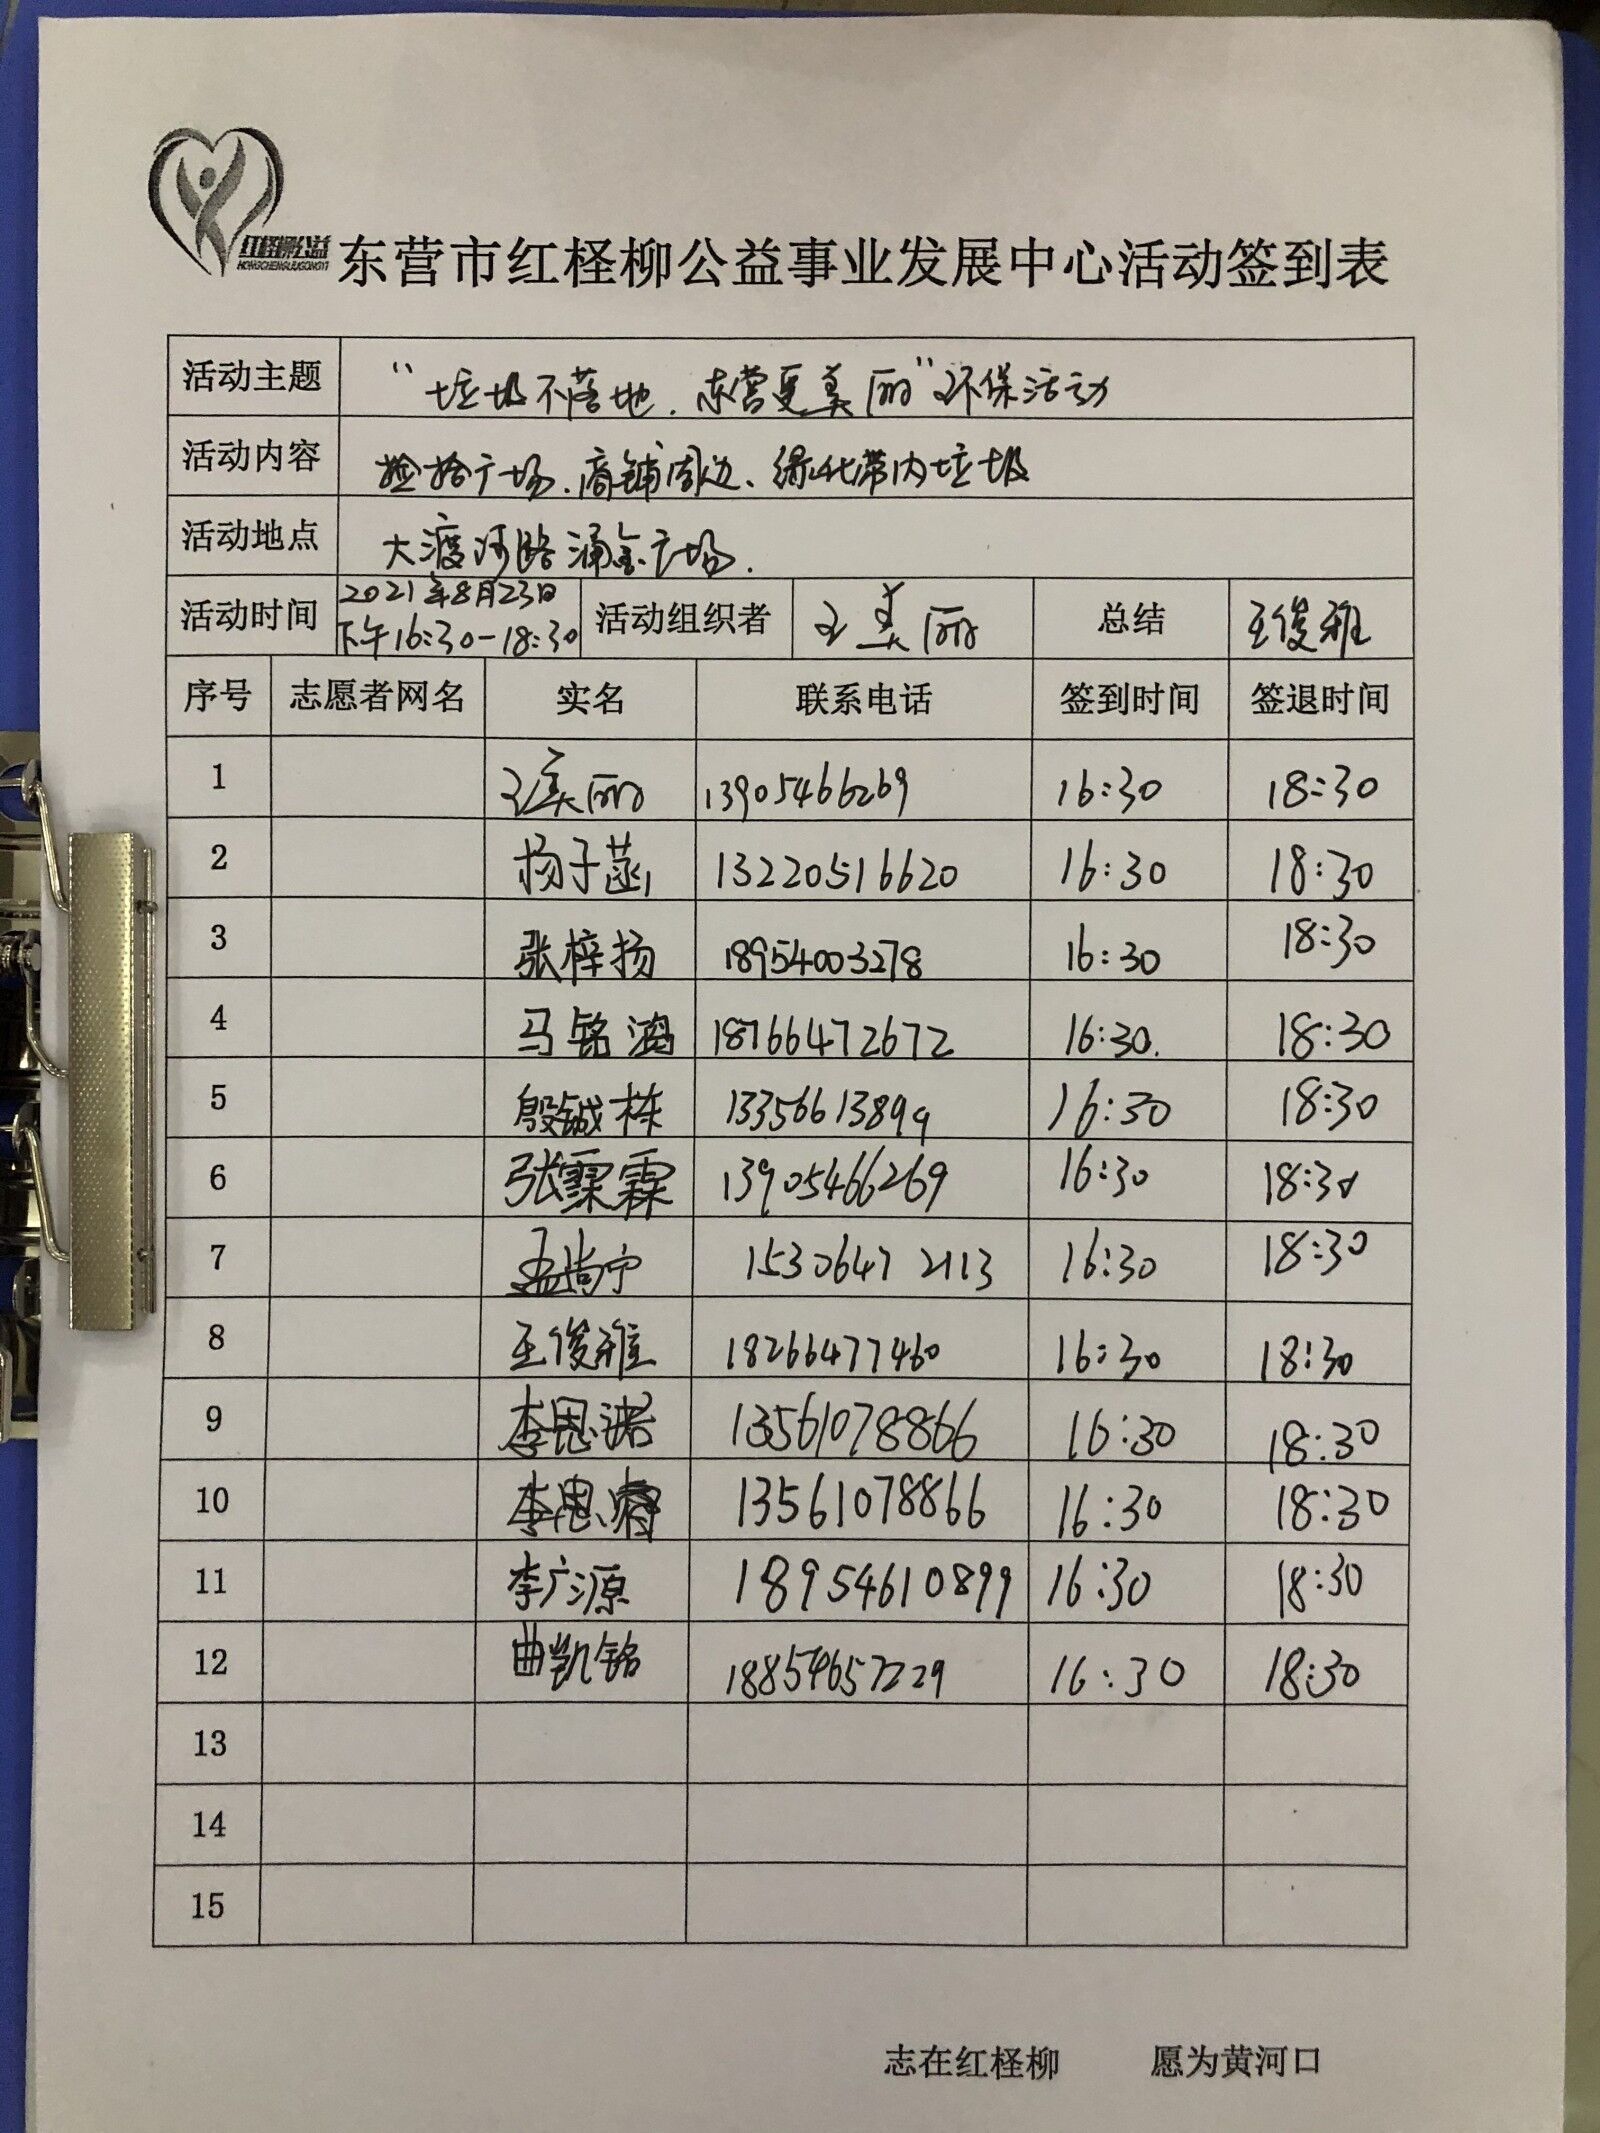 红柽柳公益
HONGCHENGLIUGONGYI
东营市红柽柳公益事业发展中心活动签到表
活动主题 “垃圾不落地.东营更美丽”环保活动
活动内容 捡拾广场、商铺周边、绿化带内垃圾
活动地点 大渡河路涌金广场.
活动时间 2021年8月23日 下午16:30-18:30 活动组织者 王美丽 总结 王俊雅
序号 志愿者网名 实名 联系电话 签到时间 签退时间
1 王美丽 13905466269 16:30 18:30
2 杨子菡 13220516620 16:30 18:30
3 张梓扬 18954003278 16:30 18:30
4 马铭鸿 18766472672 16:30. 18:30
5 殷铖栋 13356613899 16:30 18:30
6 张霂霖 13905466269 16:30 18:30
7 孟尚宁 15306472113 16:30 18:30
8 王俊雅 18266477460 16:30 18:30
9 李恩诺 13561078866 16:30 18:30
10 李思睿 13561078866 16:30 18:30
11 李广源 18954610899 16:30 18:30
12 曲凯铭 18854657229 16:30 18:30
13
14
15
志在红柽柳 愿为黄河口